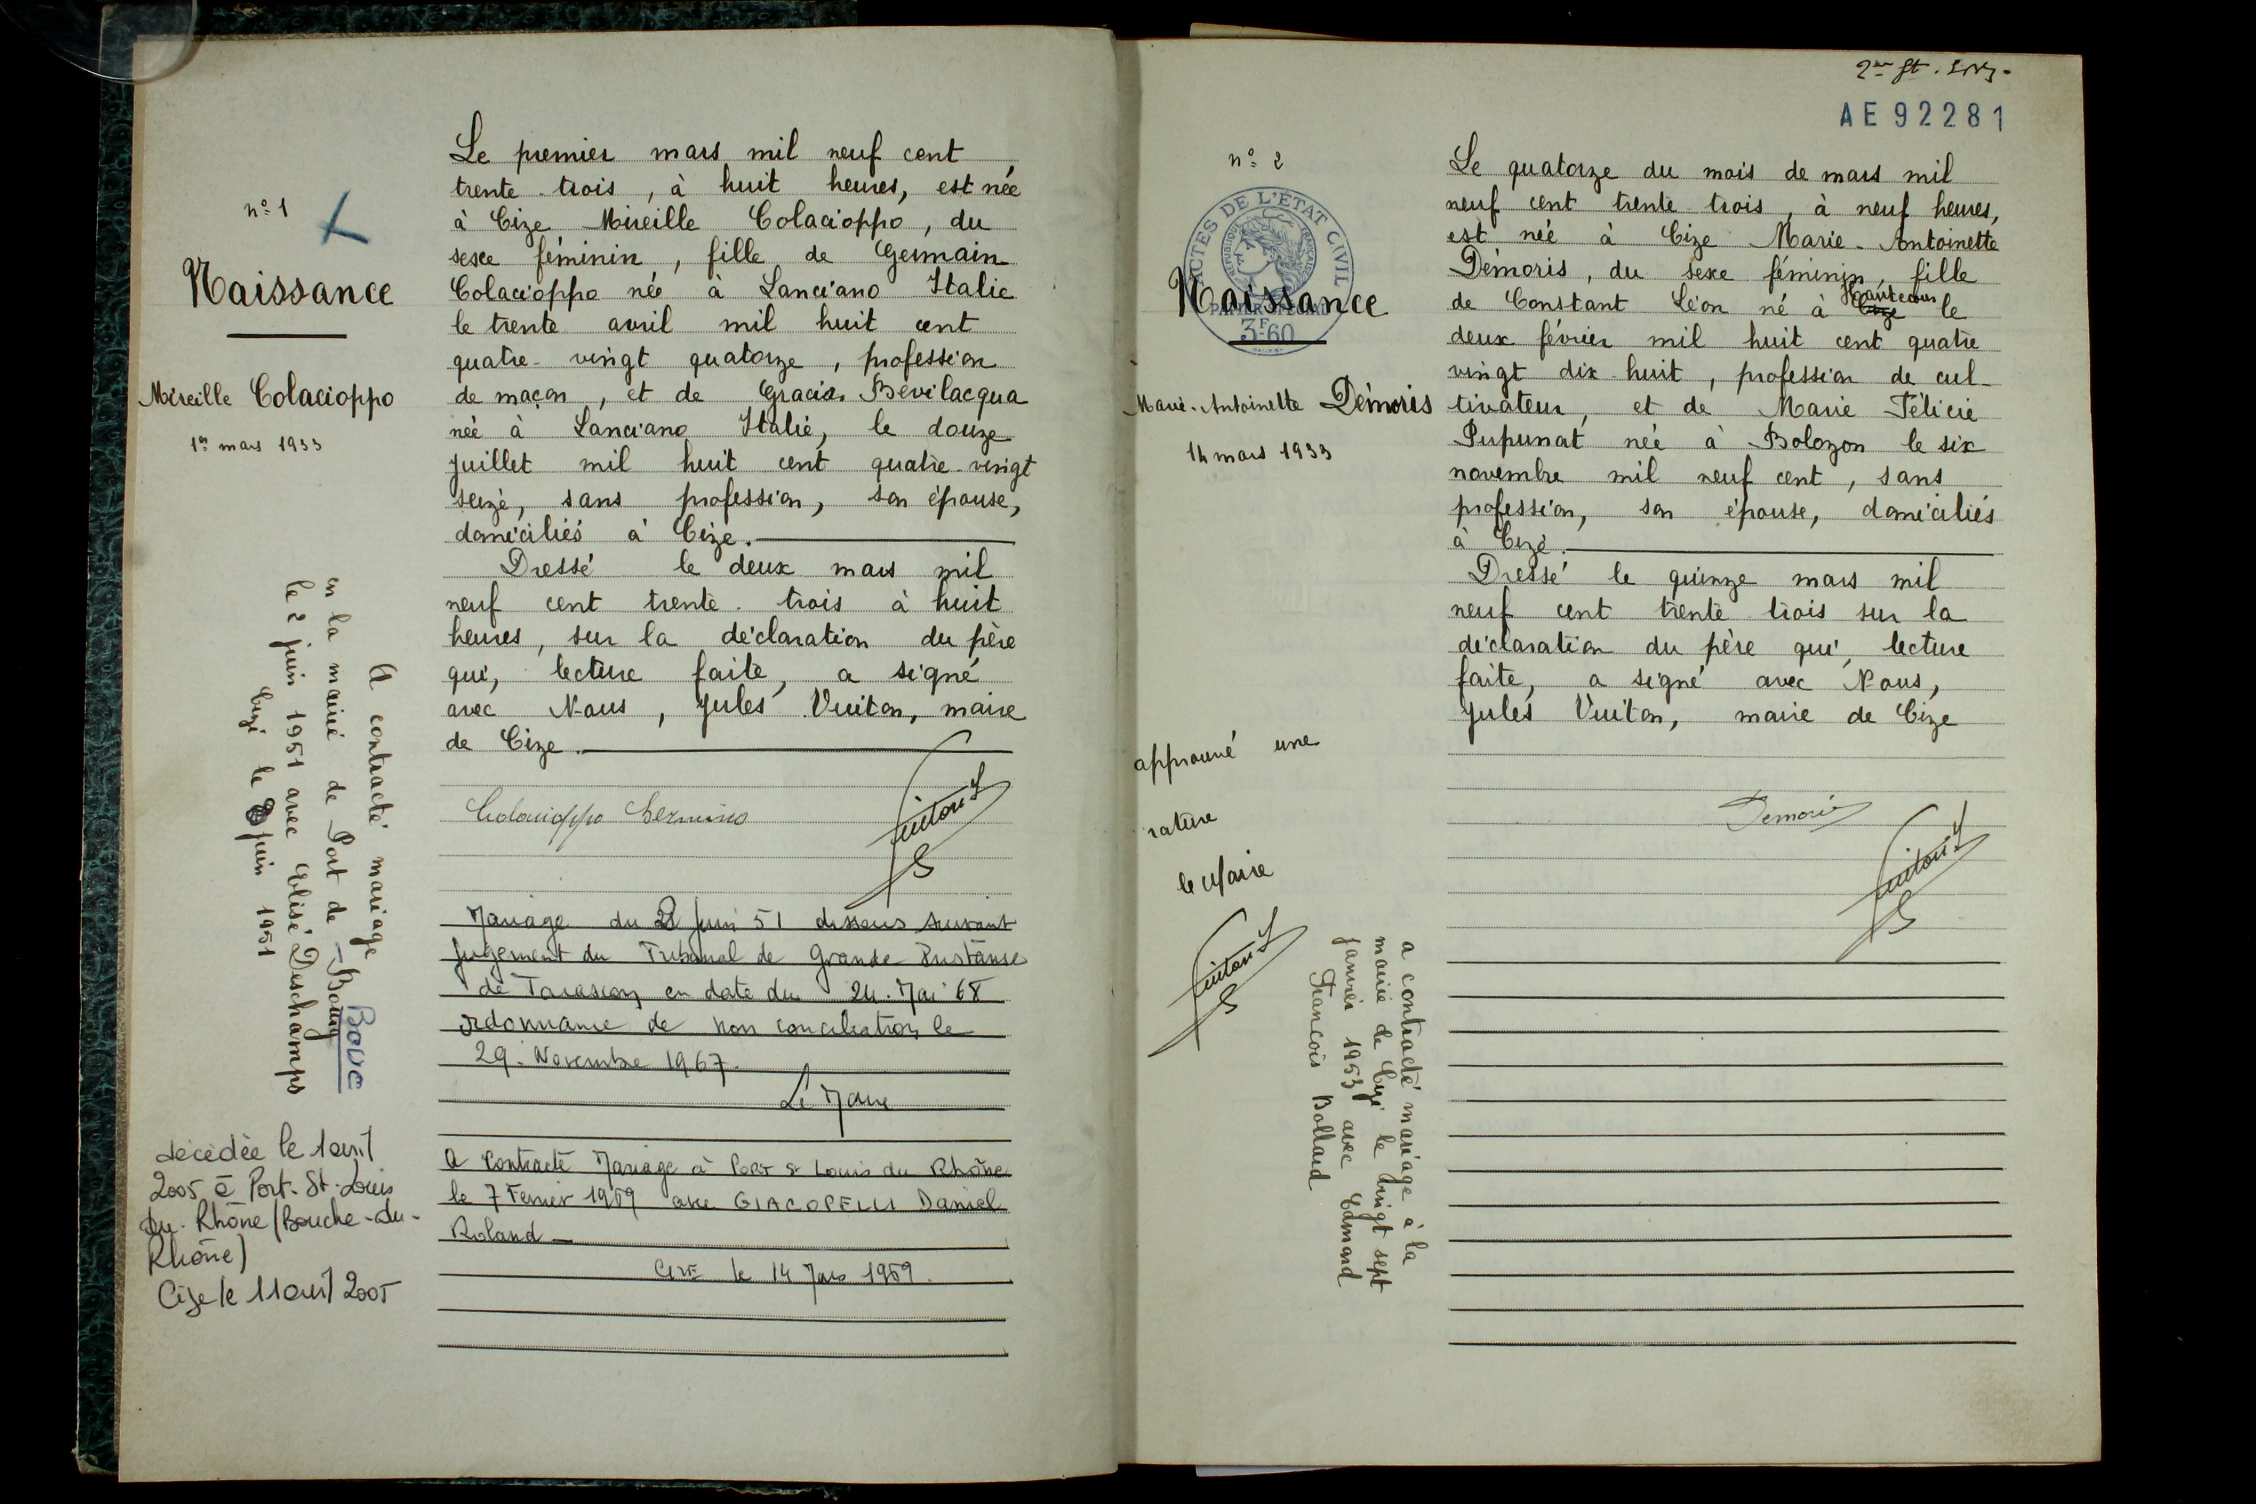 n° 1
Naissance
Mireille Colacioppo
1er mars 1933
Le premier mars mil neuf cent
trente trois, à huit heures, est née
à Cize Mireille Colacioppo, du
sexe féminin, fille de Germain
Colacioppo né à Lanciano Italie
le trente avril mil huit cent
quatre-vingt quatorze, profession
de maçon, et de Gracia Bevilacqua
née à Lanciano Italie, le douze
juillet mil huit cent quatre-vingt
seize, sans profession, son épouse,
domiciliés à Cize.
Dressé le deux mars mil
neuf cent trente-trois à huit
heures, sur la déclaration du père
qui, lecture faite, a signé
avec Nous, Jules Vuiton, maire
de Cize.
Colacioppo Germino
Vuiton J
A contracté mariage
en la mairie de Port de Bouc
Bouc
le 2 juin 1951 avec Elisé Deschamps
Cize le 8 juin 1951
Mariage du 2 Juin 51 dissous suivant
jugement du Tribunal de Grande Instance
de Tarascon en date du 24. Mai 68
ordonnance de non conciliation le
29. Novembre 1967.
Le Maire
A contracté Mariage à Port St Louis du Rhône
le 7 Février 1969 avec GIACOPELLI Daniel
Roland
Cize le 14 Mars 1969.
décédée le 1 avril
2005 à Port-St-Louis
du-Rhône (Bouche-du-
Rhône)
Cize le 11 avril 2005
AE92281
n° 2
ACTES DE L'ETAT CIVIL
REPUBLIQUE FRANÇAISE
PAPIER SPECIAL
3F60
Naissance
Marie-Antoinette Démoris
14 mars 1933
Le quatorze du mois de mars mil
neuf cent trente trois, à neuf heures,
est née à Cize Marie-Antoinette
Démoris, du sexe féminin, fille
de Constant Léon né à Cize Hautecour le
deux février mil huit cent quatre
vingt dix-huit, profession de cul-
tivateur, et de Marie Félicie
Pupunat née à Bolozon le six
novembre mil neuf cent, sans
profession, son épouse, domiciliés
à Cize.
Dressé le quinze mars mil
neuf cent trente trois sur la
déclaration du père qui, lecture
faite, a signé avec Nous,
Jules Vuiton, maire de Cize
Démoris
Vuiton J
approuvé une
rature
le Maire
Vuiton J
a contracté mariage à la
mairie de Cize le vingt sept
janvier 1953 avec Edmond
François Bollard